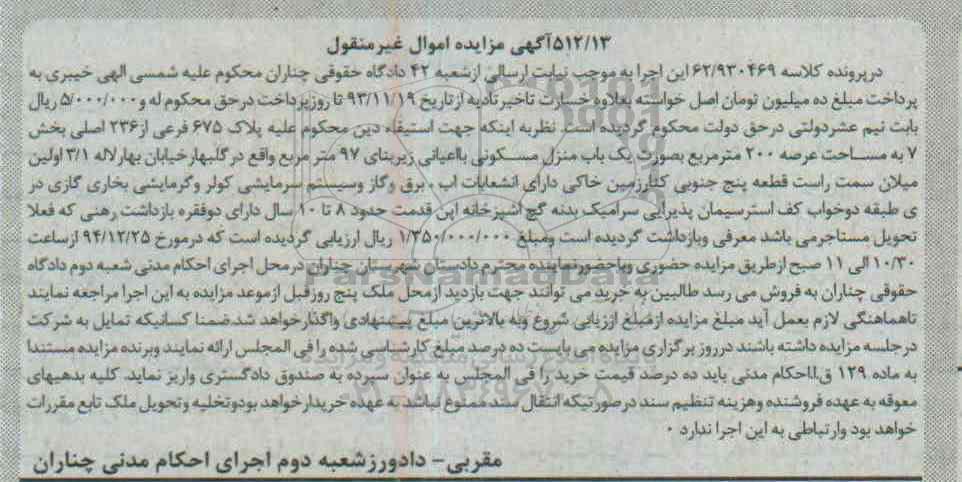 ۵۱۲/۱۳آگهی مزایده اموال غیرمنقول
درپرونده کلاسه ۶۲/۹۳۰۴۶۹ این اجرا به موجب نیابت ارسالی ازشعبه ۴۲ دادگاه حقوقی چناران محکوم علیه شمسی الهی خیبری به
پرداخت مبلغ ده میلیون تومان اصل خواسته بعلاوه خسارت تاخیر تادیه ازتاریخ ۹۳/۱۱/۱۹ تا روزپرداخت درحق محکوم له و۵/۰۰۰/۰۰۰ ریال
بابت نیم عشردولتی درحق دولت محکوم گردیده است. نظربه اینکه جهت استیفاء دین محکوم علیه پلاک ۶۷۵ فرعی از۲۳۶ اصلی بخش
۷ به مساحت عرصه ۲۰۰ مترمربع بصورت یک باب منزل مسکونی بااعیانی زیربنای ۹۷ متر مربع واقع درگلبهارخیابان بهارلاله ۳/۱ اولین
میلان سمت راست قطعه پنج جنوبی کنارزمین خاکی دارای انشعابات اب ، برق وگاز وسیستم سرمایشی کولر وگرمایشی بخاری گازی در
ی طبقه دوخواب کف استرسیمان پذیرایی سرامیک بدنه گچ اشپزخانه اپن قدمت حدود ۸ تا ۱۰ سال دارای دوفقره بازداشت رهنی که فعلا
تحویل مستاجرمی باشد معرفی وبازداشت گردیده است ومبلغ ۱/۳۵۰/۰۰۰/۰۰۰ ریال ارزیابی گردیده است که درمورخ ۹۴/۱۲/۲۵ ازساعت
۱۰/۳۰ الی ۱۱ صبح ازطریق مزایده حضوری وباحضورنماینده محترم دادستان شهرستان چناران درمحل اجرای احکام مدنی شعبه دوم دادگاه
حقوقی چناران به فروش می رسد طالبین به خرید می توانند جهت بازدید ازمحل ملک پنج روزقبل ازموعد مزایده به این اجرا مراجعه نمایند
تاهماهنگی لازم بعمل آید مبلغ مزایده ازمبلغ ارزیابی شروع وبه بالاترین مبلغ پیشنهادی واگذارخواهد شد.ضمنا کسانیکه تمایل به شرکت
درجلسه مزایده داشته باشند درروز برگزاری مزایده می بایست ده درصد مبلغ کارشناسی شده را فی المجلس ارائه نمایند وبرنده مزایده مستندا
به ماده ۱۲۹ ق.ااحکام مدنی باید ده درصد قیمت خرید را فی المجلس به عنوان سپرده به صندوق دادگستری واریز نماید. کلیه بدهیهای
معوقه به عهده فروشنده وهزینه تنظیم سند درصورتیکه انتقال سند ممنوع نباشد به عهده خریدارخواهد بودوتخلیه وتحویل ملک تابع مقررات
خواهد بود وارتباطی به این اجرا ندارد ۰
مقربی - دادورزشعبه دوم اجرای احکام مدنی چناران
ParsNamadData